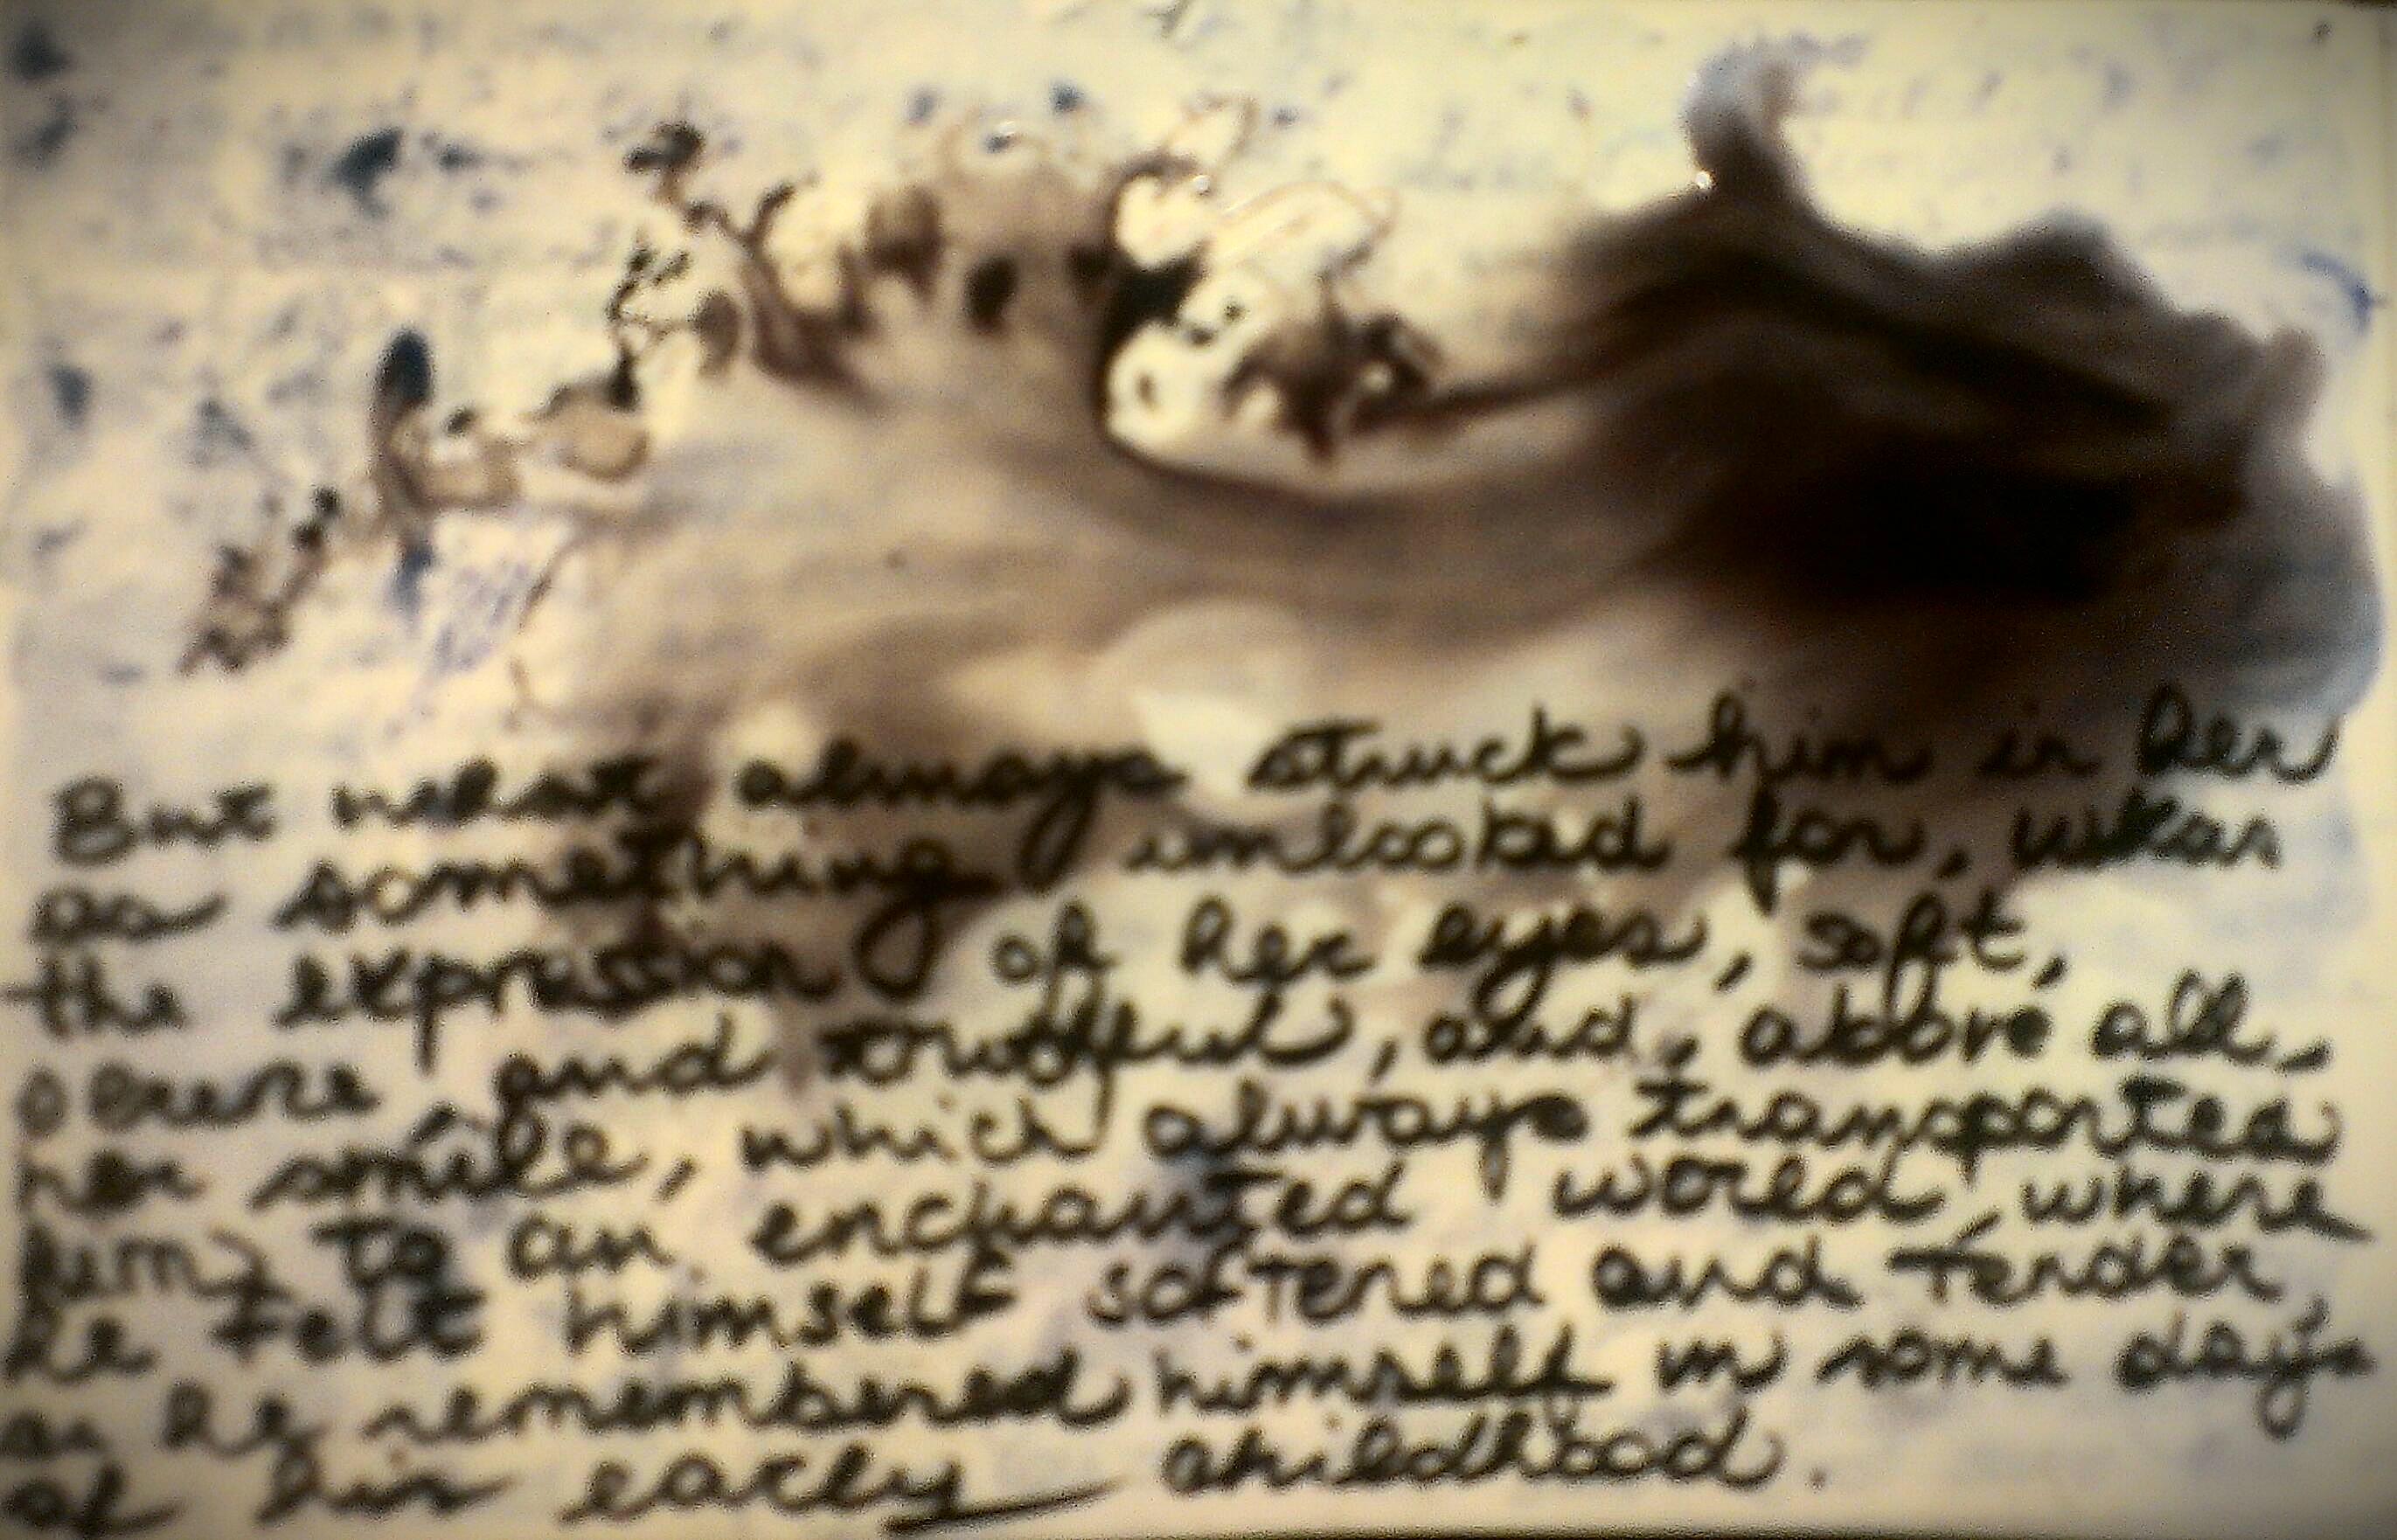 But what always struck him in her
as something unlooked for, was
the expression of her eyes, soft,
serene and truthful, and, above all,
her smile, which always transported
him to an enchanted world, where
he felt himself softened and tender,
as he remembered himself in some days
of his early childhood.